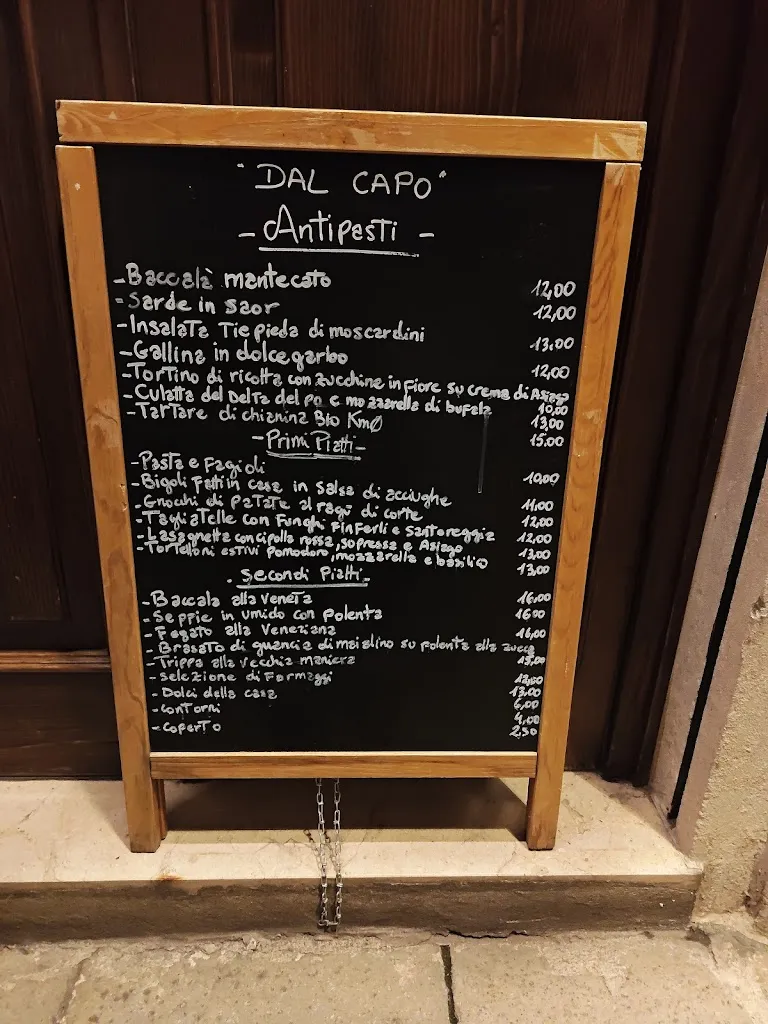 "DAL CAPO"
- Antipasti -
- Baccalà mantecato 12,00
- Sarde in saor 12,00
- Insalata Tiepida di moscardini 13,00
- Gallina in dolcegarbo 12,00
- Tortino di ricotta con zucchine in fiore su crema di Asiago 10,00
- Culatta del Delta del po e mozzarella di bufala 13,00
- Tartare di chianina Bio Km0 15,00
- Primi Piatti -
- Pasta e Fagioli 10,00
- Bigoli Fatti in casa in salsa di acciughe 11,00
- Gnochi di patate al ragù di corte 12,00
- Tagliatelle con Funghi Finferli e Santoreggia 12,00
- Lasagnetta con cipolla rossa, sopressa e Asiago 13,00
- Tortelloni estivi pomodoro, mozzarella e basilico 13,00
- Secondi Piatti -
- Baccala alla veneta 16,00
- Seppie in umido con polenta 16,00
- Fegato alla Veneziana 16,00
- Brasato di guancia di maialino su polenta alla zucca 15,00
- Trippa alla vecchia maniera 12,00
- selezione di Formaggi 13,00
- Dolci della casa 6,00
- contorni 4,00
- coperto 2,50